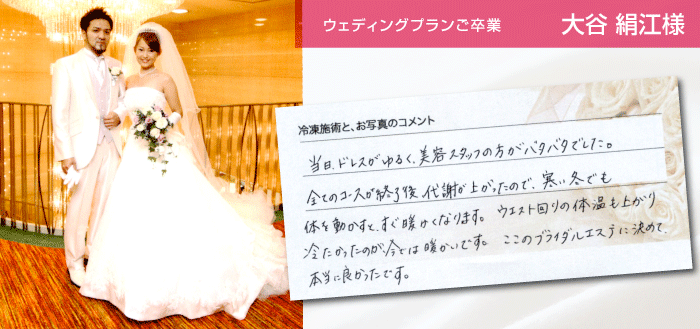 ウェディングプランご卒業
大谷 絹江様
冷凍施術と、お写真のコメント
当日、ドレスがゆるく、美容スタッフの方がバタバタでした。
全てのコースが終了後、代謝が上がったので、寒い冬でも
体を動かすと、すぐ暖かくなります。ウエスト回りの体温も上がり
冷たかったのが、今では暖かいです。ここのブライダルエステに決めて、
本当に良かったです。